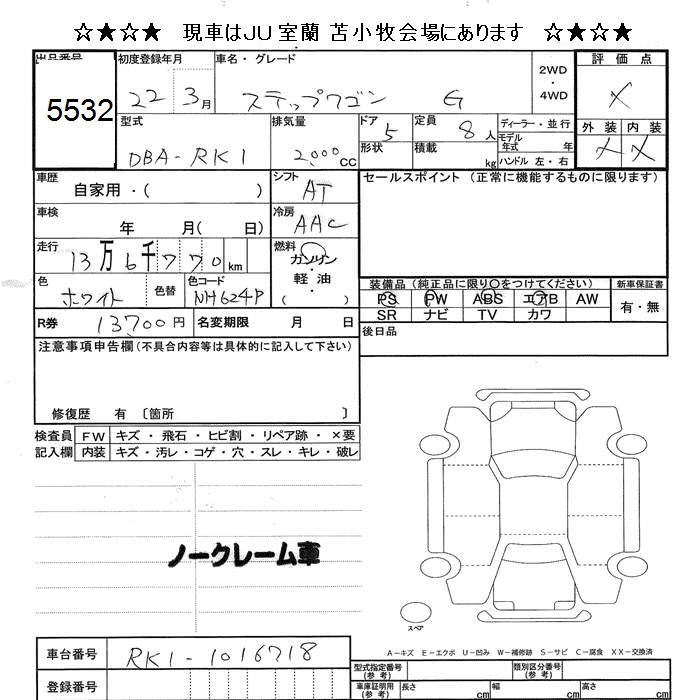 ☆★☆★ 現車はJU室蘭 苫小牧会場にあります ☆★☆★
出品番号 5532
初度登録年月 22 3月
車名・グレード ステップワゴン G
2WD・4WD
評価点 X
外装 内装
X X
型式 DBA-RK1
排気量 2,000cc
ドア 5
形状
定員 8人
積載 kg
ディーラー・並行
モデル年式 年
ハンドル 左・右
車歴 自家用・( )
シフト AT
セールスポイント (正常に機能するものに限ります)
車検 年 月( 日)
冷房 AAC
走行 13万6千770km
燃料 ガソリン・軽油・( )
色 ホワイト 色替
色コード NH624P
装備品(純正品に限り○をつけてください)
PS PW ABS エアB AW
SR ナビ TV カワ
新車保証書
有・無
R券 13700円 名変期限 月 日
後日品
注意事項申告欄(不具合内容等は具体的に記入して下さい)
修復歴 有 〔箇所 〕
検査員記入欄
FW キズ・飛石・ヒビ割・リペア跡・×要
内装 キズ・汚レ・コゲ・穴・スレ・キレ・破レ
ノークレーム車
スペア
A-キズ E-エクボ U-凹み W-補修跡 S-サビ C-腐食 XX-交換済
車台番号 RK1-1016718
登録番号
型式指定番号(参考)
類別区分番号(参考)
車庫証明用(参考) 長さ cm 幅 cm 高さ cm